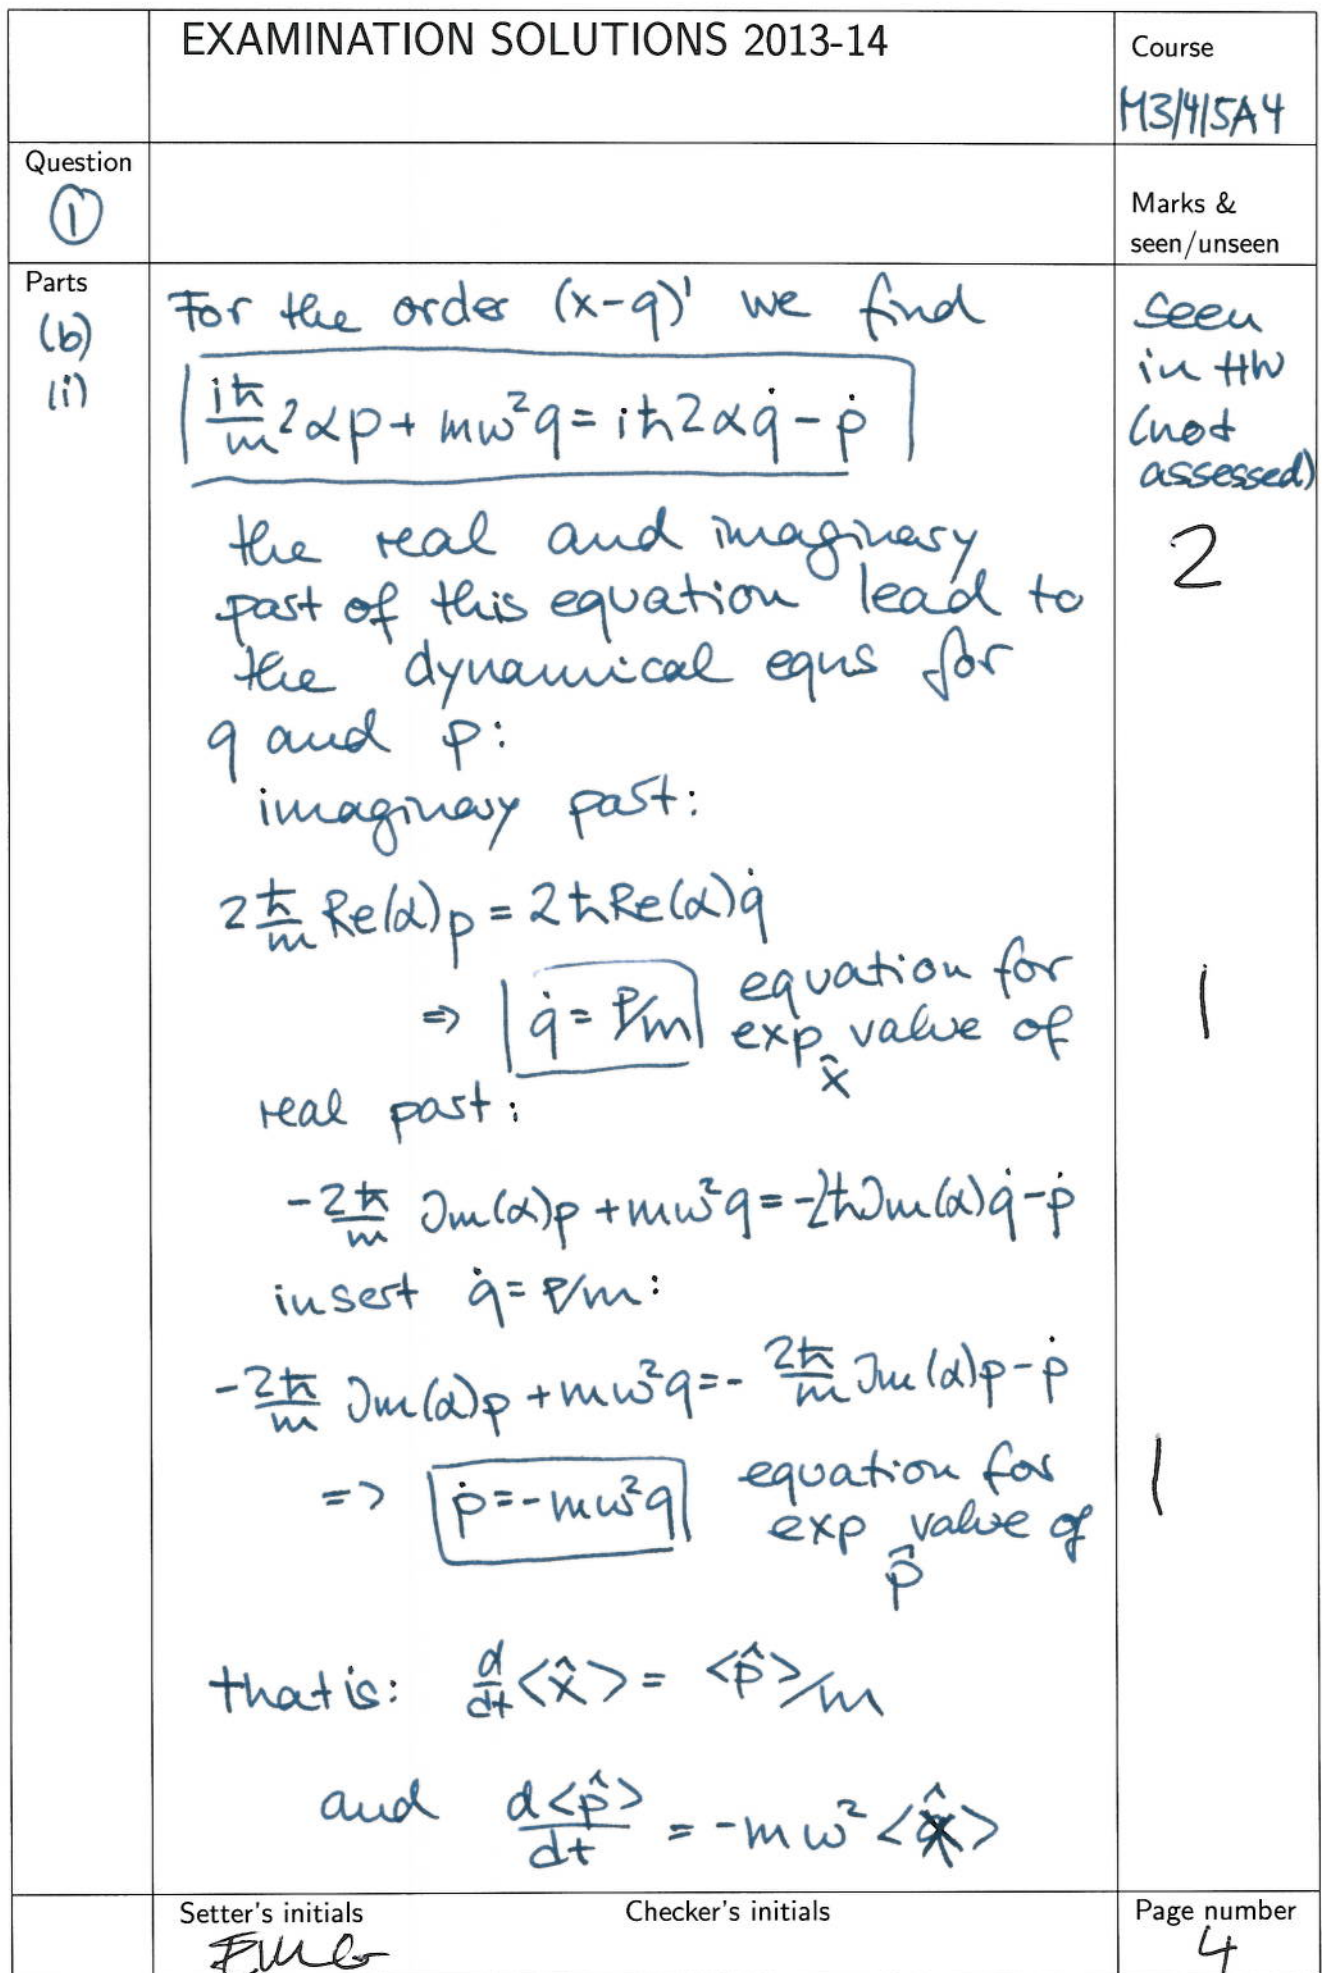 EXAMINATION SOLUTIONS 2013-14
Course
M3/4/5A4
Question
1
Marks &
seen/unseen
Parts
(b)
(i)
For the order (x-q)' we find
seen
in HW
(not
assessed)
iħ/m 2αp + mω²q = iħ2αq̇ - ṗ
the real and imaginary
2
part of this equation lead to
the dynamical eqns for
q and p:
imaginary part:
2 ħ/m Re(α)p = 2ħRe(α)q̇
⇒ q̇ = p/m equation for
exp value of
x̂
1
real part:
-2ħ/m Im(α)p + mω²q = -2ħIm(α)q̇ - ṗ
insert q̇ = p/m:
-2ħ/m Im(α)p + mω²q = - 2ħ/m Im(α)p - ṗ
=> ṗ = -mω²q equation for
exp value of
p̂
1
that is: d/dt <x̂> = <p̂>/m
and d<p̂>/dt = -mω²<x̂>
Setter's initials
Checker's initials
Page number
4